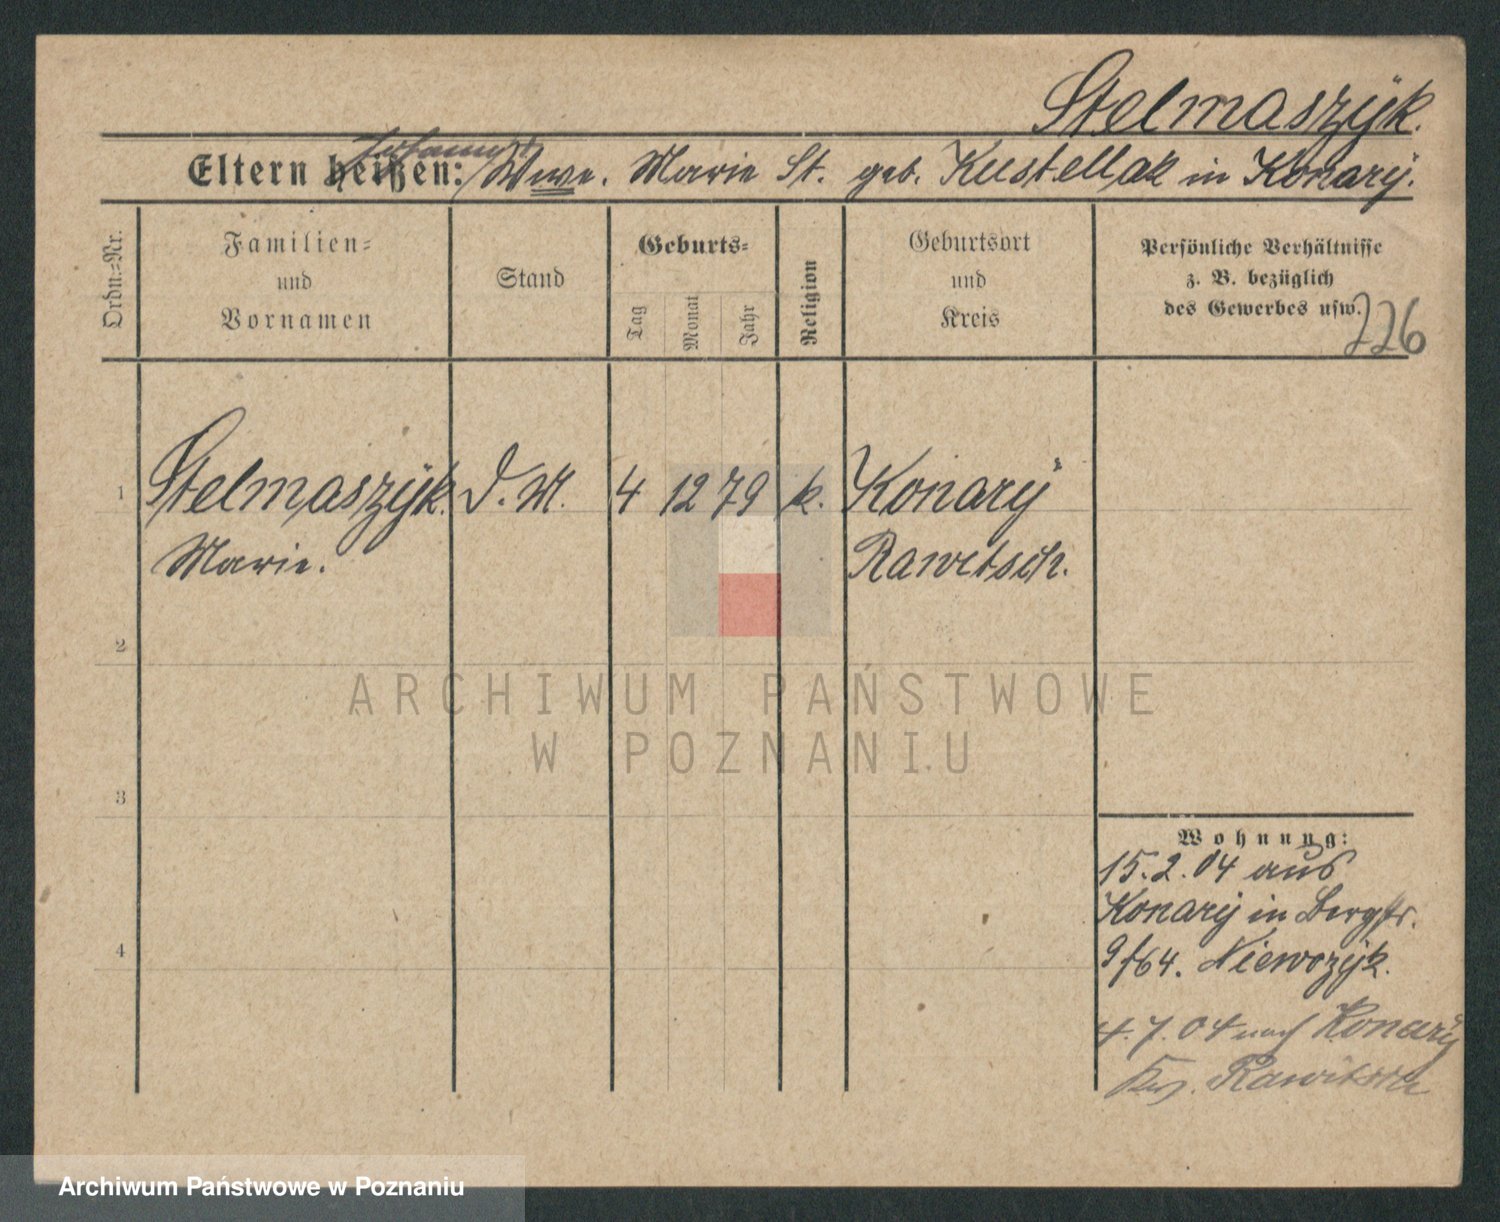 Stelmaszÿk.
Eltern heißen: Wwe. Marie St. geb. Kustellak in Konarÿ.
Ordn.=Nr.
Familien=
und
Vornamen
Stand
Geburts=
Tag
Monat
Jahr
Religion
Geburtsort
und
Kreis
Persönliche Verhältnisse
z. B. bezüglich
des Gewerbes usw.
226
1 Stelmaszÿk. D. M. 4 12 79 k. Konarÿ
Marie. Rawitsch.
2
3
4
Wohnung:
15.2.04 aus
Konarÿ in Bergstr.
9/64. Niewozÿk.
4.7.04 nach Konarÿ
Krs. Rawitsch
ARCHIWUM PAŃSTWOWE
W POZNANIU
Archiwum Państwowe w Poznaniu